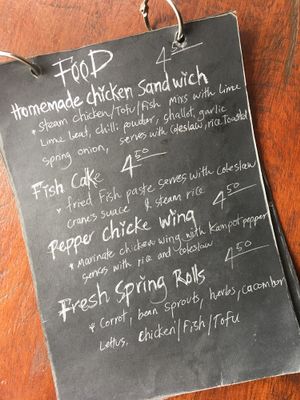 FOOD
4 50
Homemade chicken Sandwich
* Steam chicken/Tofu/Fish mixs with Lime
Lime Leat, chilli powder, shallot, garlic
spring onion, serves with Coleslaw, rice, Toasted
4 50
Fish Cake
* fried Fish paste serves with Coleslaw
Cranes suace & steam rice
4 50
Pepper chicke wing
* Marinate chicken wing with Kampot pepper
serves with rice and coleslaw
4 50
Fresh Spring Rolls
* Corrot, bean sprouts, herbs, cacomber
Lettus, Chicken/Fish/Tofu